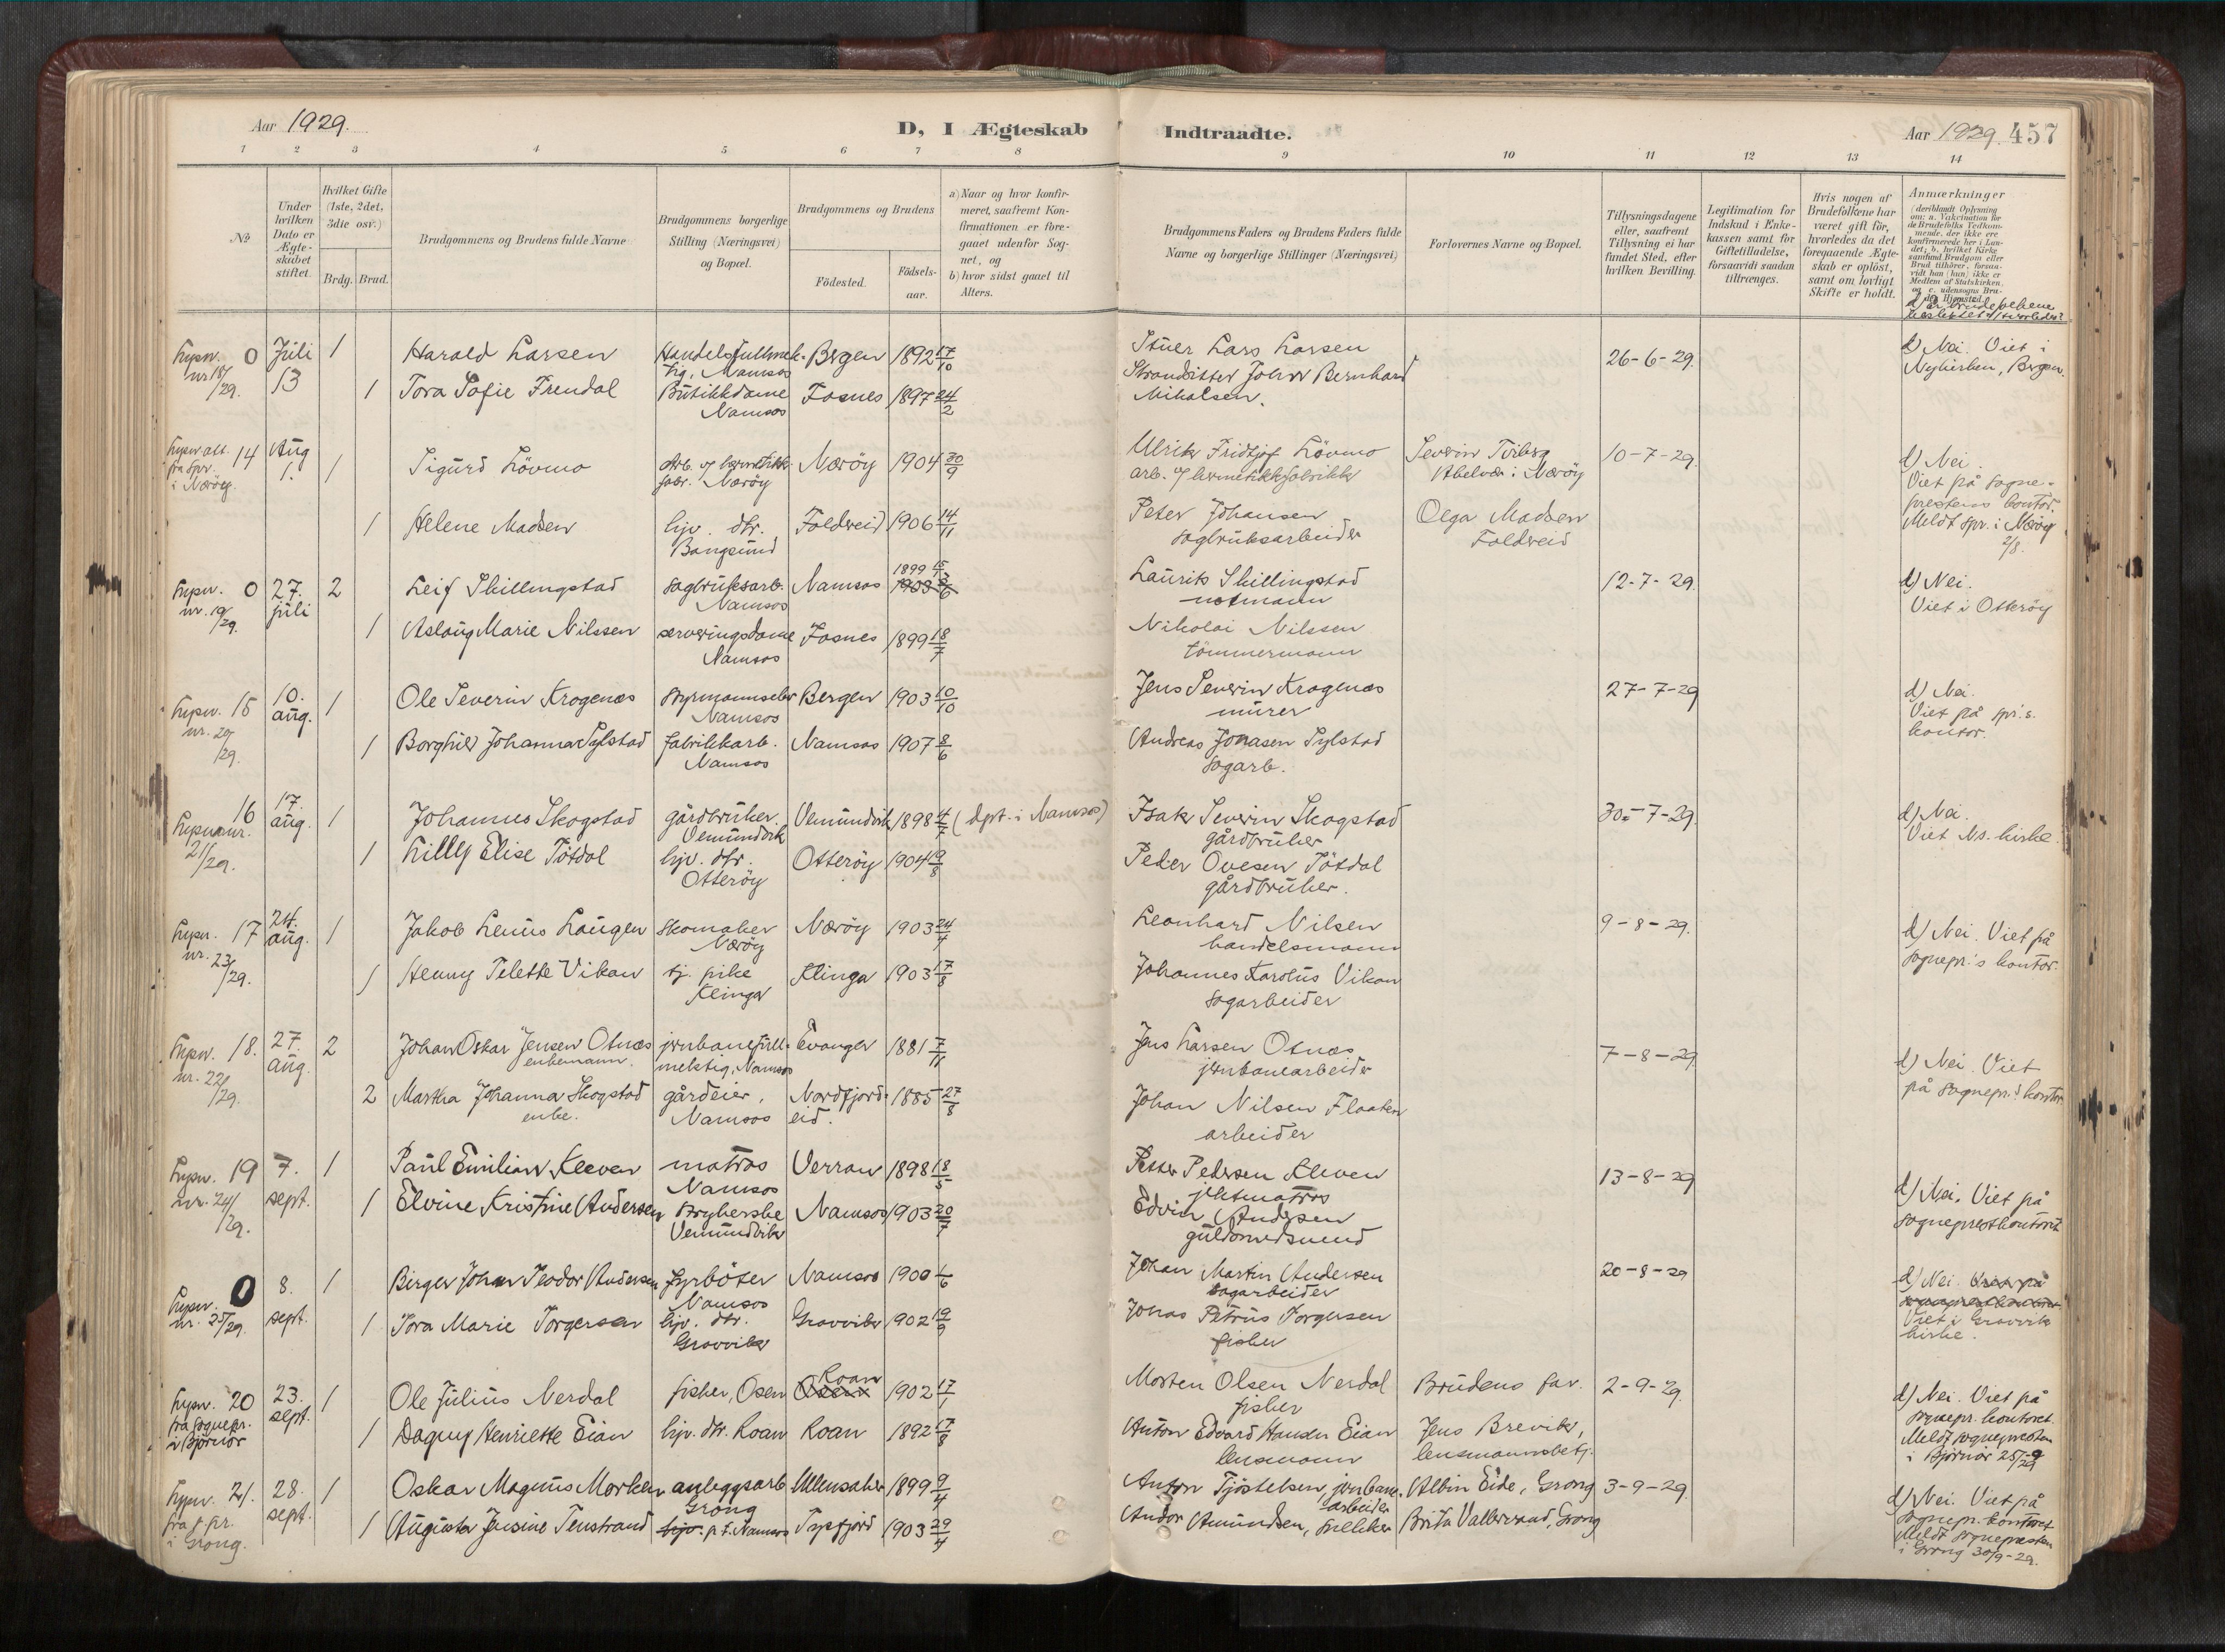 Aar 1929.
D, I Ægteskab
Indtraadte.
Aar 1929. 457
1 2 3 4 5 6 7 8 9 10 11 12 13 14
No
Under hvilken Dato er Ægteskabet stiftet.
Hvilket Gifte (1ste, 2det, 3die osv.)
Brdg. Brud.
Brudgommens og Brudens fulde Navne
Brudgommens borgerlige Stilling (Næringsvei) og Bopæl.
Brudgommens og Brudens
Födested.
Födsels-aar.
a) Naar og hvor konfirmeret, saafremt Konfirmationen er foregaaet udenfor Sognet, og
b) hvor sidst gaaet til Alters.
Brudgommens Faders og Brudens Faders fulde Navne og borgerlige Stillinger (Næringsvei)
Forlovernes Navne og Bopæl.
Tillysningsdagene eller, saafremt Tillysning ei har fundet Sted, efter hvilken Bevilling.
Legitimation for Indskud i Enkekassen samt for Giftetilladelse, forsaavidt saadan tiltrænges.
Hvis nogen af Brudefolkene har været gift för, hvorledes da det foregaaende Ægteskab er oplöst, samt om lovligt Skifte er holdt.
Anmærkninger
0 Juli 13 1 Harald Larsen Handelsfullmek-tig, Namsos Bergen 1892 17/10 Stuer Lars Larsen 26-6-29. d) Nei. Viet i Nykirken, Bergen.
1 Tora Sofie Frendal Butikkdame Namsos Fosnes 1897 24/2 Strandsitter Johan Bernhard Mikalsen.
14 Aug 1. 1 Sigurd Lövmo Arb. v/ hermetikk-fabr. Næröy Næröy 1904 30/9 Ulrik Fridtjof Lövmo arb. v/ hermetikkfabrikk Severin Abelvær i Næröy 10-7-29. d) Nei. Viet på sogneprestens kontor. Meldt spr. i Næröy 2/8.
1 Helene Madsen hjv. dtr. Bangsund Foldereid 1906 14/11 Peter Johansen sagbruksarbeider Olga Madsen Foldereid
nr. 19/29. 0 27. juli 2 Leif Skillingstad sagbruksarb. Namsos Namsos 1899 1903 Laurits Skillingstad notmann 12-7-29. d) Nei. Viet i Otteröy
1 Aslaug Marie Nilssen serveringsdame Namsos Fosnes 1899 18/7 Nikolai Nilssen tömmermann
15 10. aug. 1 Ole Severin Krogenæs styrmannselev Namsos Bergen 1903 10/10 Jens Severin Krogenæs murer 27-7-29 d) Nei. Viet på spr.s. kontor.
1 Borghild Johanna Sylstad fabrikkarb. Namsos Namsos 1907 8/6 Andreas Jonasen Sylstad sagarb.
nr. 21/29. 16 17. aug. 1 Johannes Skogstad gårdbruker. Vemundvik Vemundvik 1898 4/7 (dpt. i Namsos) Isak Severin Skogstad gårdbruker 30.-7-29. d) Nei. Viet Ns. kirke.
1 Lilly Elise Tötdal hjv. dtr. Otteröy Otteröy 1904 19/8 Peder Ovesen Tötdal gårdbruker.
nr. 23/29. 17 24. aug. 1 Jakob Lenus Laugen skomaker Næröy Næröy 1903 24/4 Leonhard Nilsen handelsmann 9-8-29. d) Nei. Viet på sognepr.'s kontor.
1 Henny Pelette Vikan tj. pike Klinga Klinga 1903 17/8 Johannes Karolus Vikan sagarbeider
nr. 22/29. 18. 27. aug. 2 Johan Oskar Jensen Otnæs enkemann. jernbanefull-mektig, Namsos Evanger 1881 7/11 Jens Larsen Otnæs jernbanearbeider 7-8-29 d) Nei. Viet på sognepr.s kontor
2 Martha Johanna Skogstad enke. gårdeier, Namsos Nordfjord-eid. 1885 27/8 Johan Nilsen Flaaten arbeider
nr. 24/29. 19 7. sept. 1 Paul Emilian Kleven matros Namsos Verran 1898 18/5 Petter Pedersen Kleven jektmatros 13-8-29 d) Nei. Viet på sogneprestkontoret
1 Elvine Kristine Andersen strykerske Vemundvik Namsos 1903 20/7 Edvin Andersen gullsmedsvend
nr. 25/29. 0 8. sept. 1 Birger Johan Teodor Andersen fyrböter Namsos Namsos 1900 1/6 Johan Martin Andersen sagarbeider 20-8-29 d) Nei. Viet på Viet i Gravvik kirke.
1 Tora Marie Torgersen hjv. dtr. Gravvik Gravvik 1902 19/9 Johas Petrus Torgersen fisker
fra sognepr. i Björnör 20 23. sept. 1 Ole Julius Nerdal fisker, Osen Osen Roan 1902 17/1 Morten Olsen Nerdal fisker Brudens far. 2-9-29. d) Nei. Viet på sognepr. kontoret. Meldt sognepresten i Björnör 25/9 29
1 Dagny Henriette Eian hjv. dtr. Roan Roan 1892 17/8 Anton Edvard Hansen Eian lensmann Jens Brevik, lensmannsbetj.
fra spr. i Grong. 21. 28. sept. 1 Oskar Magnus Morken anleggsarb Grong Ullensaker 1899 9/4 Anton Tjöstelsen, jernbane-arbeider Albin Eide, Grong 3-9-29. d) Nei. Viet på sognepr. kontoret Meldt sognepresten i Grong 30/9-29.
1 Augusta Jensine Tenstrand hjv. p.t. Namsos Tysfjord 1903 29/4 Andor Amundsen, Brita Grong